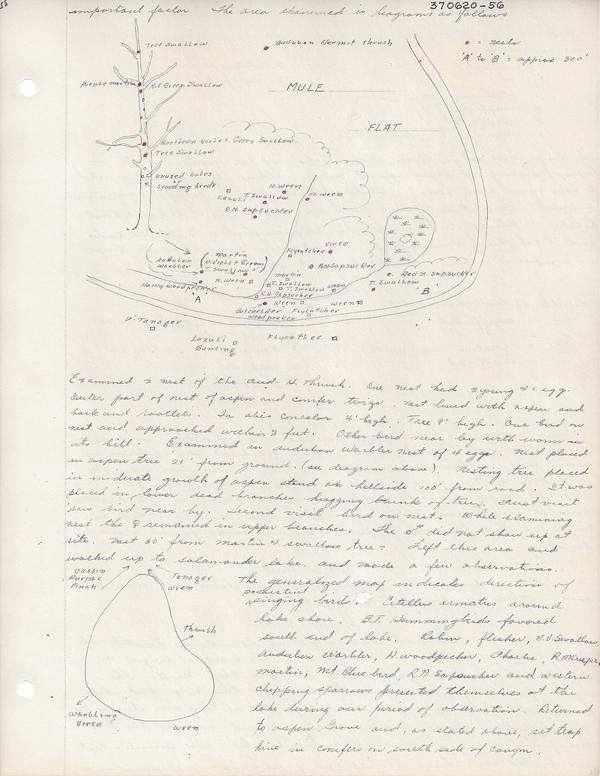 56
370620-56
important factor The area examined is diagramed as follows
Tree Swallow
Audubon Hermit thrush
= nests
'A' to 'B' = approx 300'
Purple martin
V.G. Green Swallow
MULE
FLAT
Northern Violet Green Swallow
Tree Swallow
Unused holes
brooding birds
H. Wren
Lazuli
T. Swallow
H. Wren
R.N. Sapsucker
Martin
Flycatcher
Vireo
Audubon Warbler
(V. Violet Green)
T. Swallow
R.N. Sapsucker
Martin
Red N. Sapsucker
Hairy Woodpecker
H. Wren
T. Swallow
T. Swallow
wren
T. Swallow
A
B
R.N. Sapsucker
Wren
wren
Batchelder Woodpecker
Flycatcher
W. Tanager
Lazuli Bunting
Flycatcher
Examined 2 nest of the aud. H. Thrush. One nest had 2 young & 1 egg.
Outer part of nest of aspen and conifer twigs, nest lined with aspen and
bark and rootlets. In abies concolor 4' high. Tree 9' high. One bird on
nest and approached within 2 feet. Other bird near by with worm in
its bill. Examined an Audubon Warbler nest of 4 eggs. Nest placed
in aspen tree 21' from ground. (see diagram above). Nesting tree placed
in moderate growth of aspen stand on hillside 100' from road. It was
placed in lower dead branches hugging trunk of tree. First visit
saw bird near by. Second visit bird on nest. While examining
nest the ♀ remained in upper branches. The ♂ did not show up at
site. Nest 60' from martin & swallow tree - Left this area and
walked up to salamander lake, and made a few observations.
Cassin Purple Finch
Tanager
wren
Thrush
Warbling Vireo
wren
The generalized map indicates direction of
persistent
singing birds. Citellus armatus around
lake shore. B.T. Hummingbirds favored
south end of lake. Robin, flicker, N.V. Swallow,
Audubon Warbler, H woodpecker, Phoebe, R.M. Creeper,
martin, Mt. Blue bird, R.N. Sapsucker and western
chipping sparrows presented themselves at the
lake during our period of observation. Returned
to aspen Grove and, as stated above, set trap
line in conifers on south side of canyon.